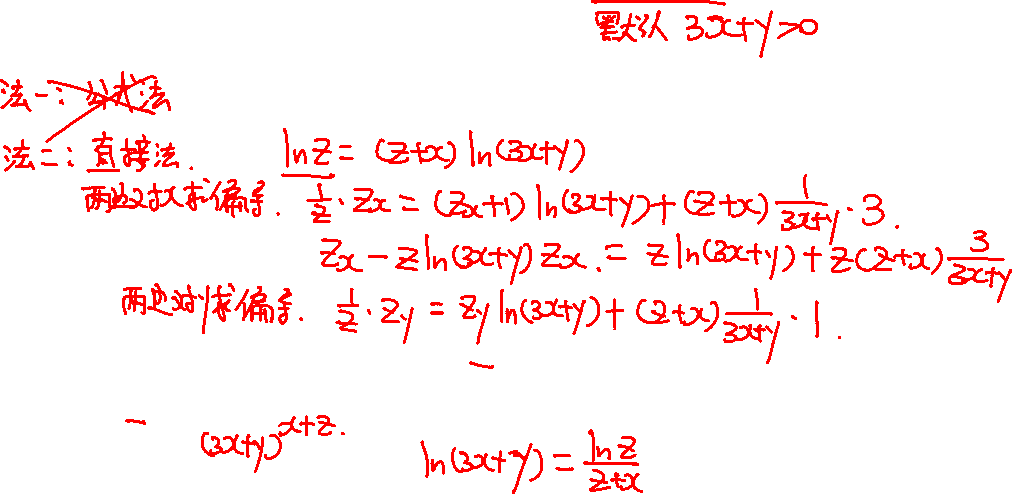 默认 3x+y>0
法一：公式法
法二：直接法. lnz = (z+x) ln(3x+y)
两边对x求偏导. 1/z · Zx = (Zx+1) ln(3x+y) + (z+x) 1/(3x+y) · 3.
Zx - z ln(3x+y) Zx. = z ln(3x+y) + z(z+x) 3/(3x+y)
两边对y求偏导. 1/z · Zy = Zy ln(3x+y) + (z+x) 1/(3x+y) · 1.
(3x+y)^(x+z). ln(3x+y) = lnz/(z+x)